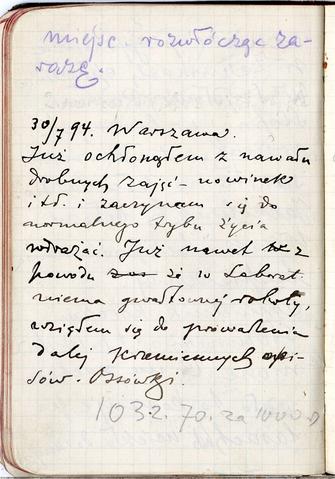 miejsc. rozwłócząc za-
razę.
30/7 94. Warszawa.
Już ochłonąłem z nawału
drobnych zajęć - nowinek
itd. i zaczynam się do
normalnego trybu życia
wdrażać. Już nawet z
powodu że w Laborat
niema gwałtownej roboty,
wziąłem się do prowadzenia
dalej krzemiennych opi-
sów. Ossówki.
1032. 70. za 1000